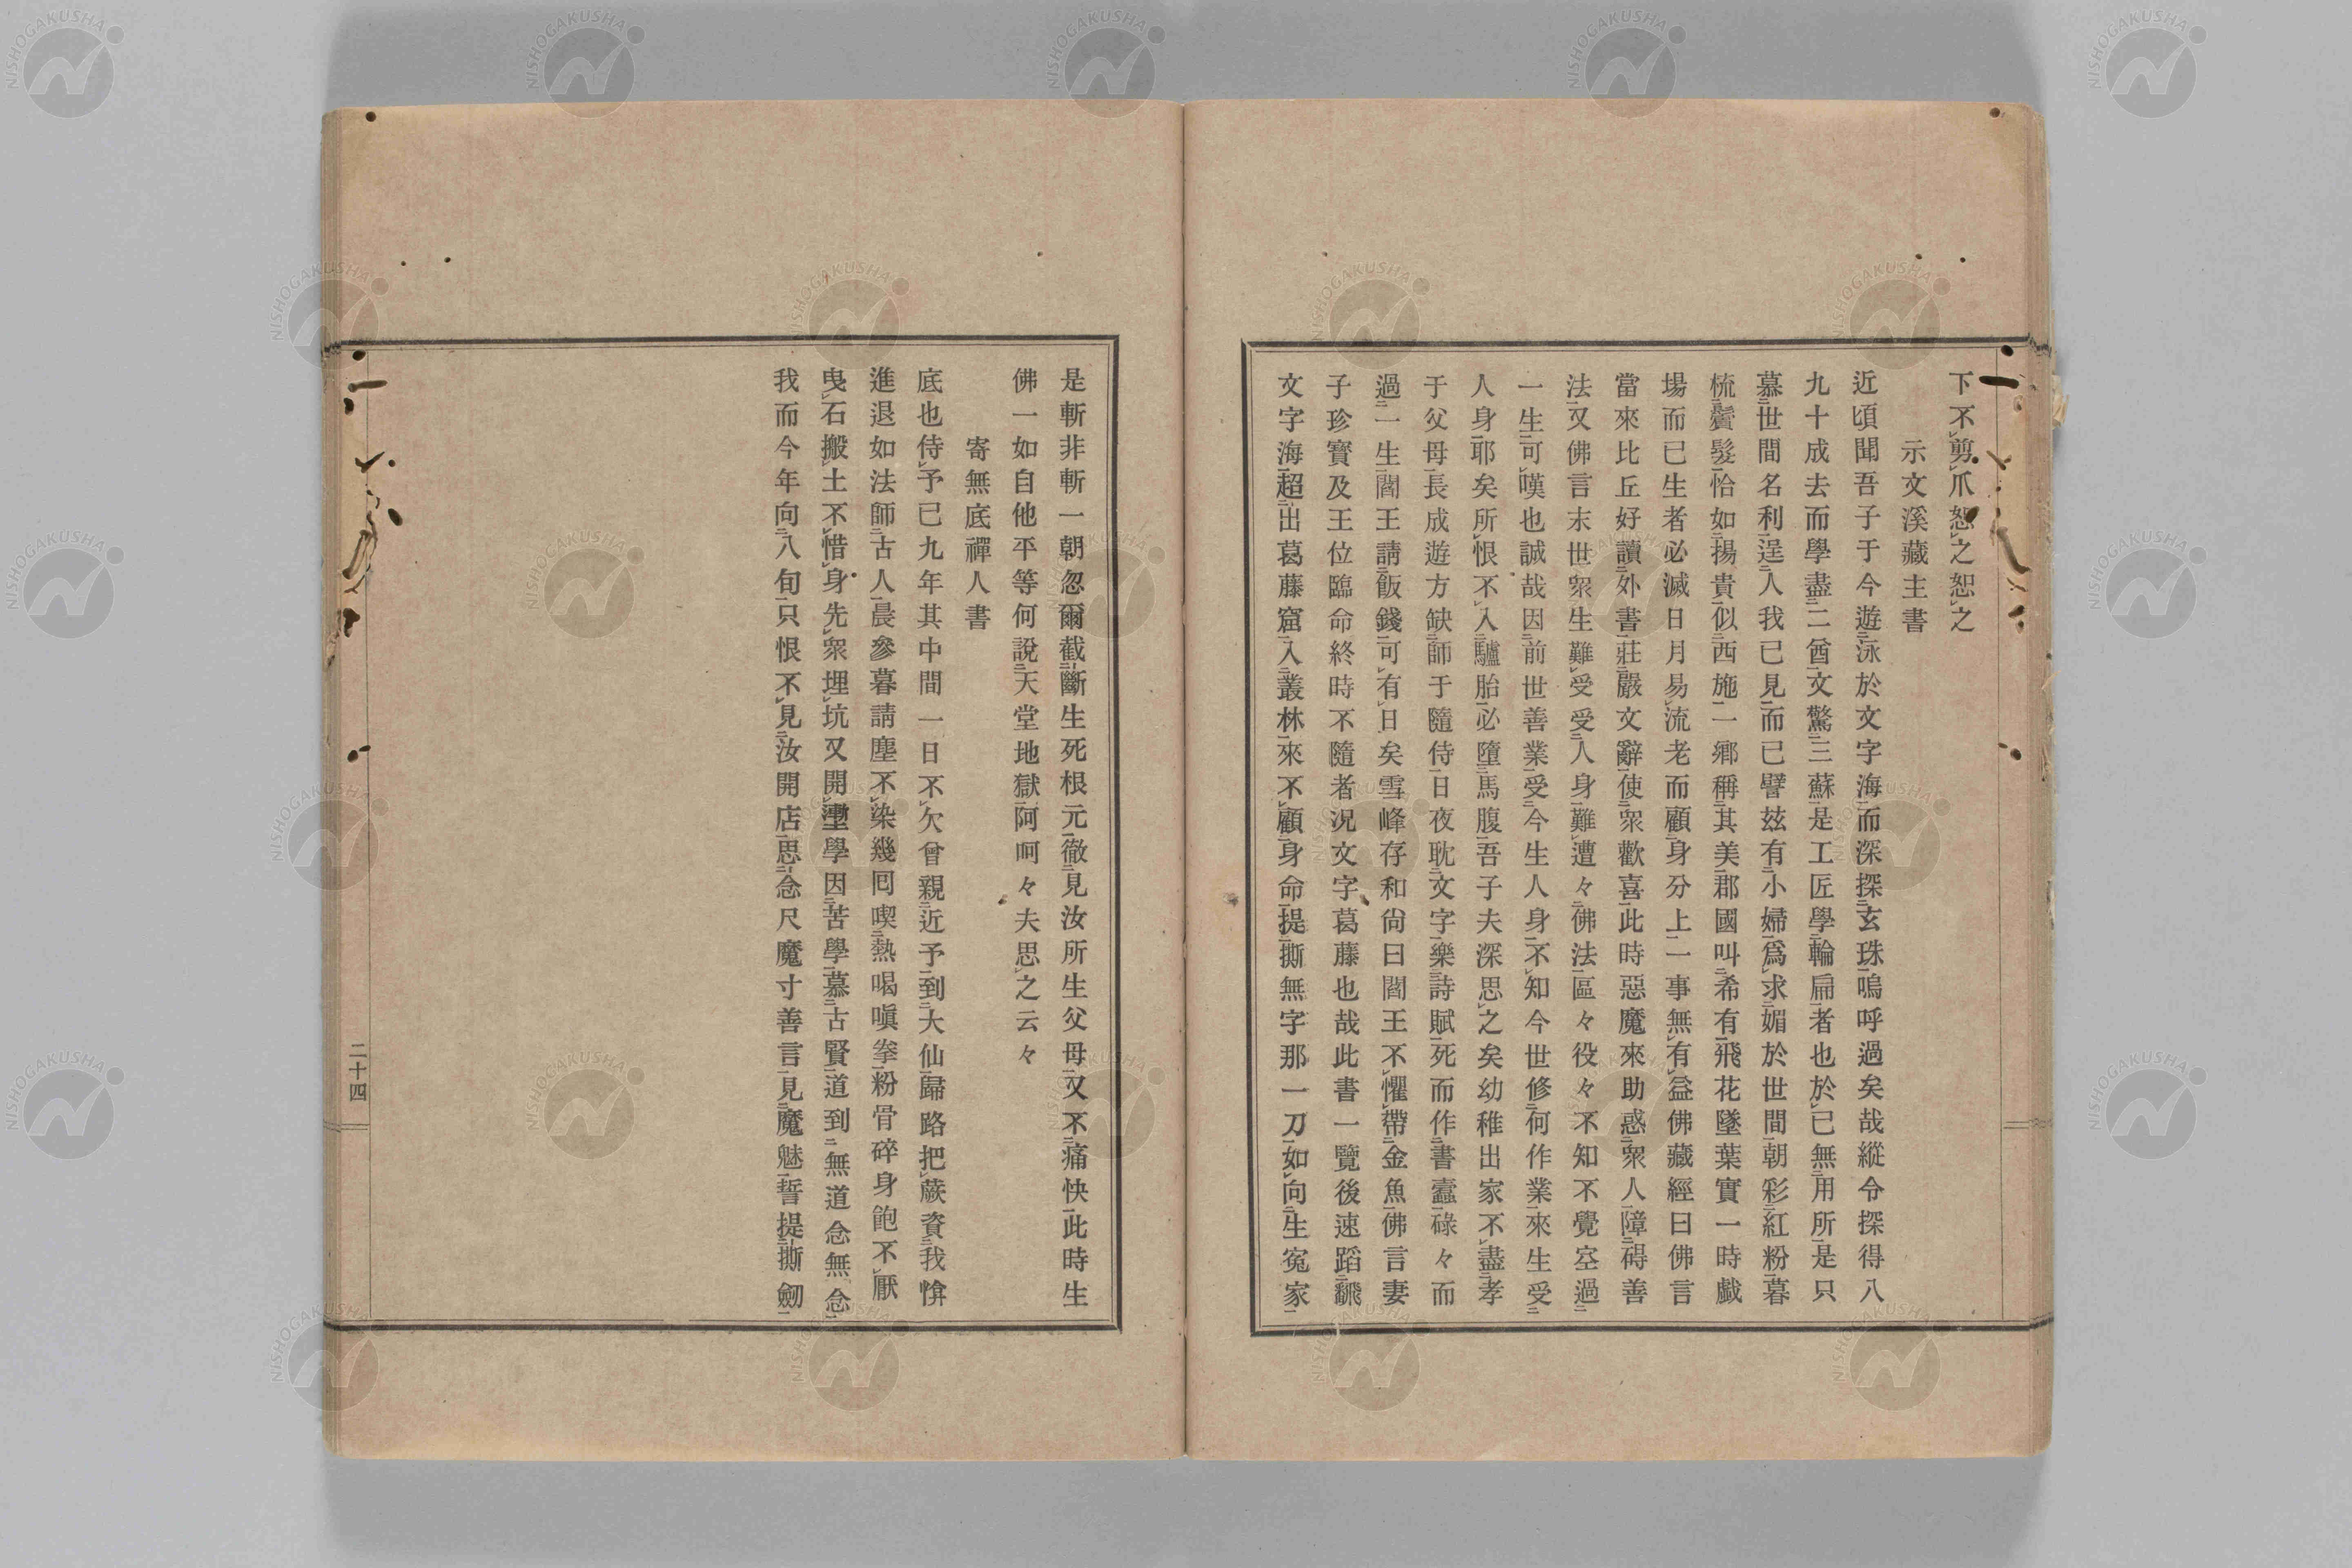 下不剪爪恕之恕之
示文溪藏主書
近頃聞吾子于今遊泳於文字海而深探玄珠嗚呼過矣哉縱令探得八
九十成去而學盡二酋文驚三蘇是工匠學輪扁者也於己無用所是只
慕世間名利逞人我已見而已譬玆有小婦爲求媚於世間朝彩紅粉暮
梳鬢髮恰如揚貴似西施一鄉稱其美郡國叫希有飛花墜葉實一時戯
場而已生者必滅日月易流老而顧身分上一事無有益佛藏經曰佛言
當來比丘好讀外書莊嚴文辭使衆歡喜此時惡魔來助惑衆人障碍善
法又佛言末世衆生難受受人身難遭々佛法區々役々不知不覺空過
一生可嘆也誠哉因前世善業受今生人身不知今世修何作業來生受
人身耶矣所恨不入驢胎必墮馬腹吾子夫深思之矣幼稚出家不盡孝
于父母長成遊方缺師于隨侍日夜耽文字樂詩賦死而作書蠹碌々而
過一生閻王請飯錢可有日矣雪峰存和尙曰閻王不懼帶金魚佛言妻
子珍寶及王位臨命終時不隨者況文字葛藤也哉此書一覽後速蹈飜
文字海超出葛藤窟入叢林來不顧身命提撕無字那一刀如向生冤家
是斬非斬一朝忽爾截斷生死根元徹見汝所生父母又不痛快此時生
佛一如自他平等何說天堂地獄阿呵々夫思之云々
寄無底禪人書
底也侍予已九年其中間一日不欠曾親近予到大仙歸路把蕨資我憐
進退如法師古人晨參暮請塵不染幾囘喫熱喝嗔拳粉骨碎身飽不厭
曳石搬土不惜身先衆埋坑又開壍學因苦學慕古賢道到無道念無念
我而今年向八旬只恨不見汝開店思念尺魔寸善言見魔魅誓提撕劒
二十四
NISHOGAKUSHA